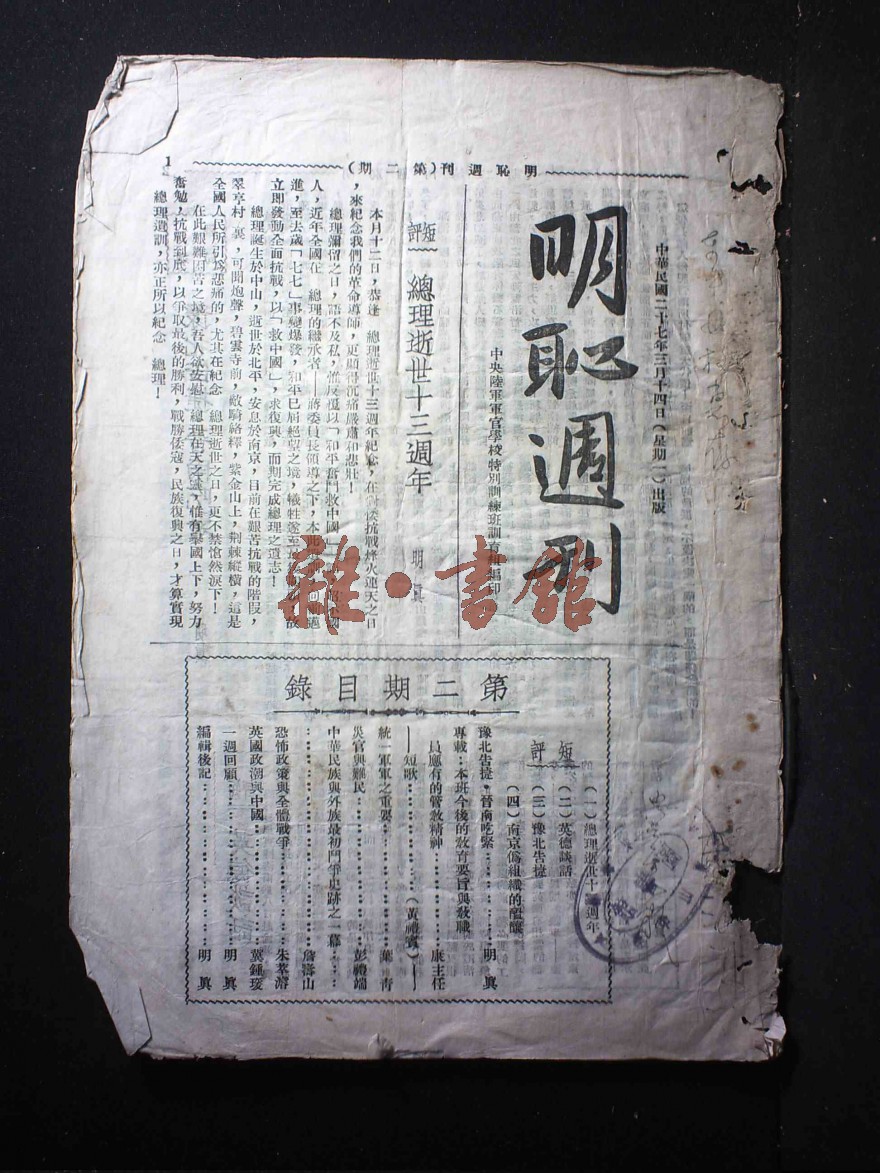 明恥週刊(第二期)
1
中華民國二十七年三月十四日(星期一)出版
明恥週刊
中央陸軍軍官學校特別訓練班訓育組編印
短評
總理逝世十三週年
明眞
本月十二日,恭逢 總理逝世十三週年紀念,在 抗戰烽火連天之日
,來紀念我們的革命導師,更顯得沉痛嚴肅和悲壯!
總理彌留之日,語不及私,惟反復以「和平奮鬥救中國」
人,近年全國在 總理的繼承者——蔣委員長領導之下,本此
進,至去歲「七七」事變爆發,和平已屆絕望之境,犧牲遂至 故
立即發動全面抗戰,以「救中國」,求復興,而期完成總理之遺志!
總理誕生於中山,逝世於北平,安息於南京,目前在艱苦抗戰的階段,
翠亨村裏,可聞炮聲,碧雲寺前,敵騎絡繹,紫金山上,荆棘縱橫,這是
全國人民所引爲悲痛的,尤其在紀念 總理逝世之日,更不禁愴然淚下!
在此艱難困苦之境,吾人欲安慰 總理在天之靈,惟有舉國上下,努力
奮勉,抗戰到底,以爭取最後的勝利,戰勝倭寇,民族復興之日,才算實現
總理遺訓,亦正所以紀念 總理!
雜·書館
第二期目錄
短評
(一)總理逝世十三週年
(二)英德談話
(三)豫北告捷
(四)南京僞組織的醞釀
豫北告捷,晉南吃緊……明眞
專載:本班今後的敎育要旨與敎職
員應有的管敎精神……康主任
——短歌……(黃禮賓)——
統一軍軍之重要……葉青
災官與難民……彭禮端
中華民族與外族最初鬥爭史跡之一幕……
……詹壽山
恐怖政策與全體戰爭……朱萃濬
英國政潮與中國……冀鍾瑗
一週回顧……明眞
編輯後記……明眞